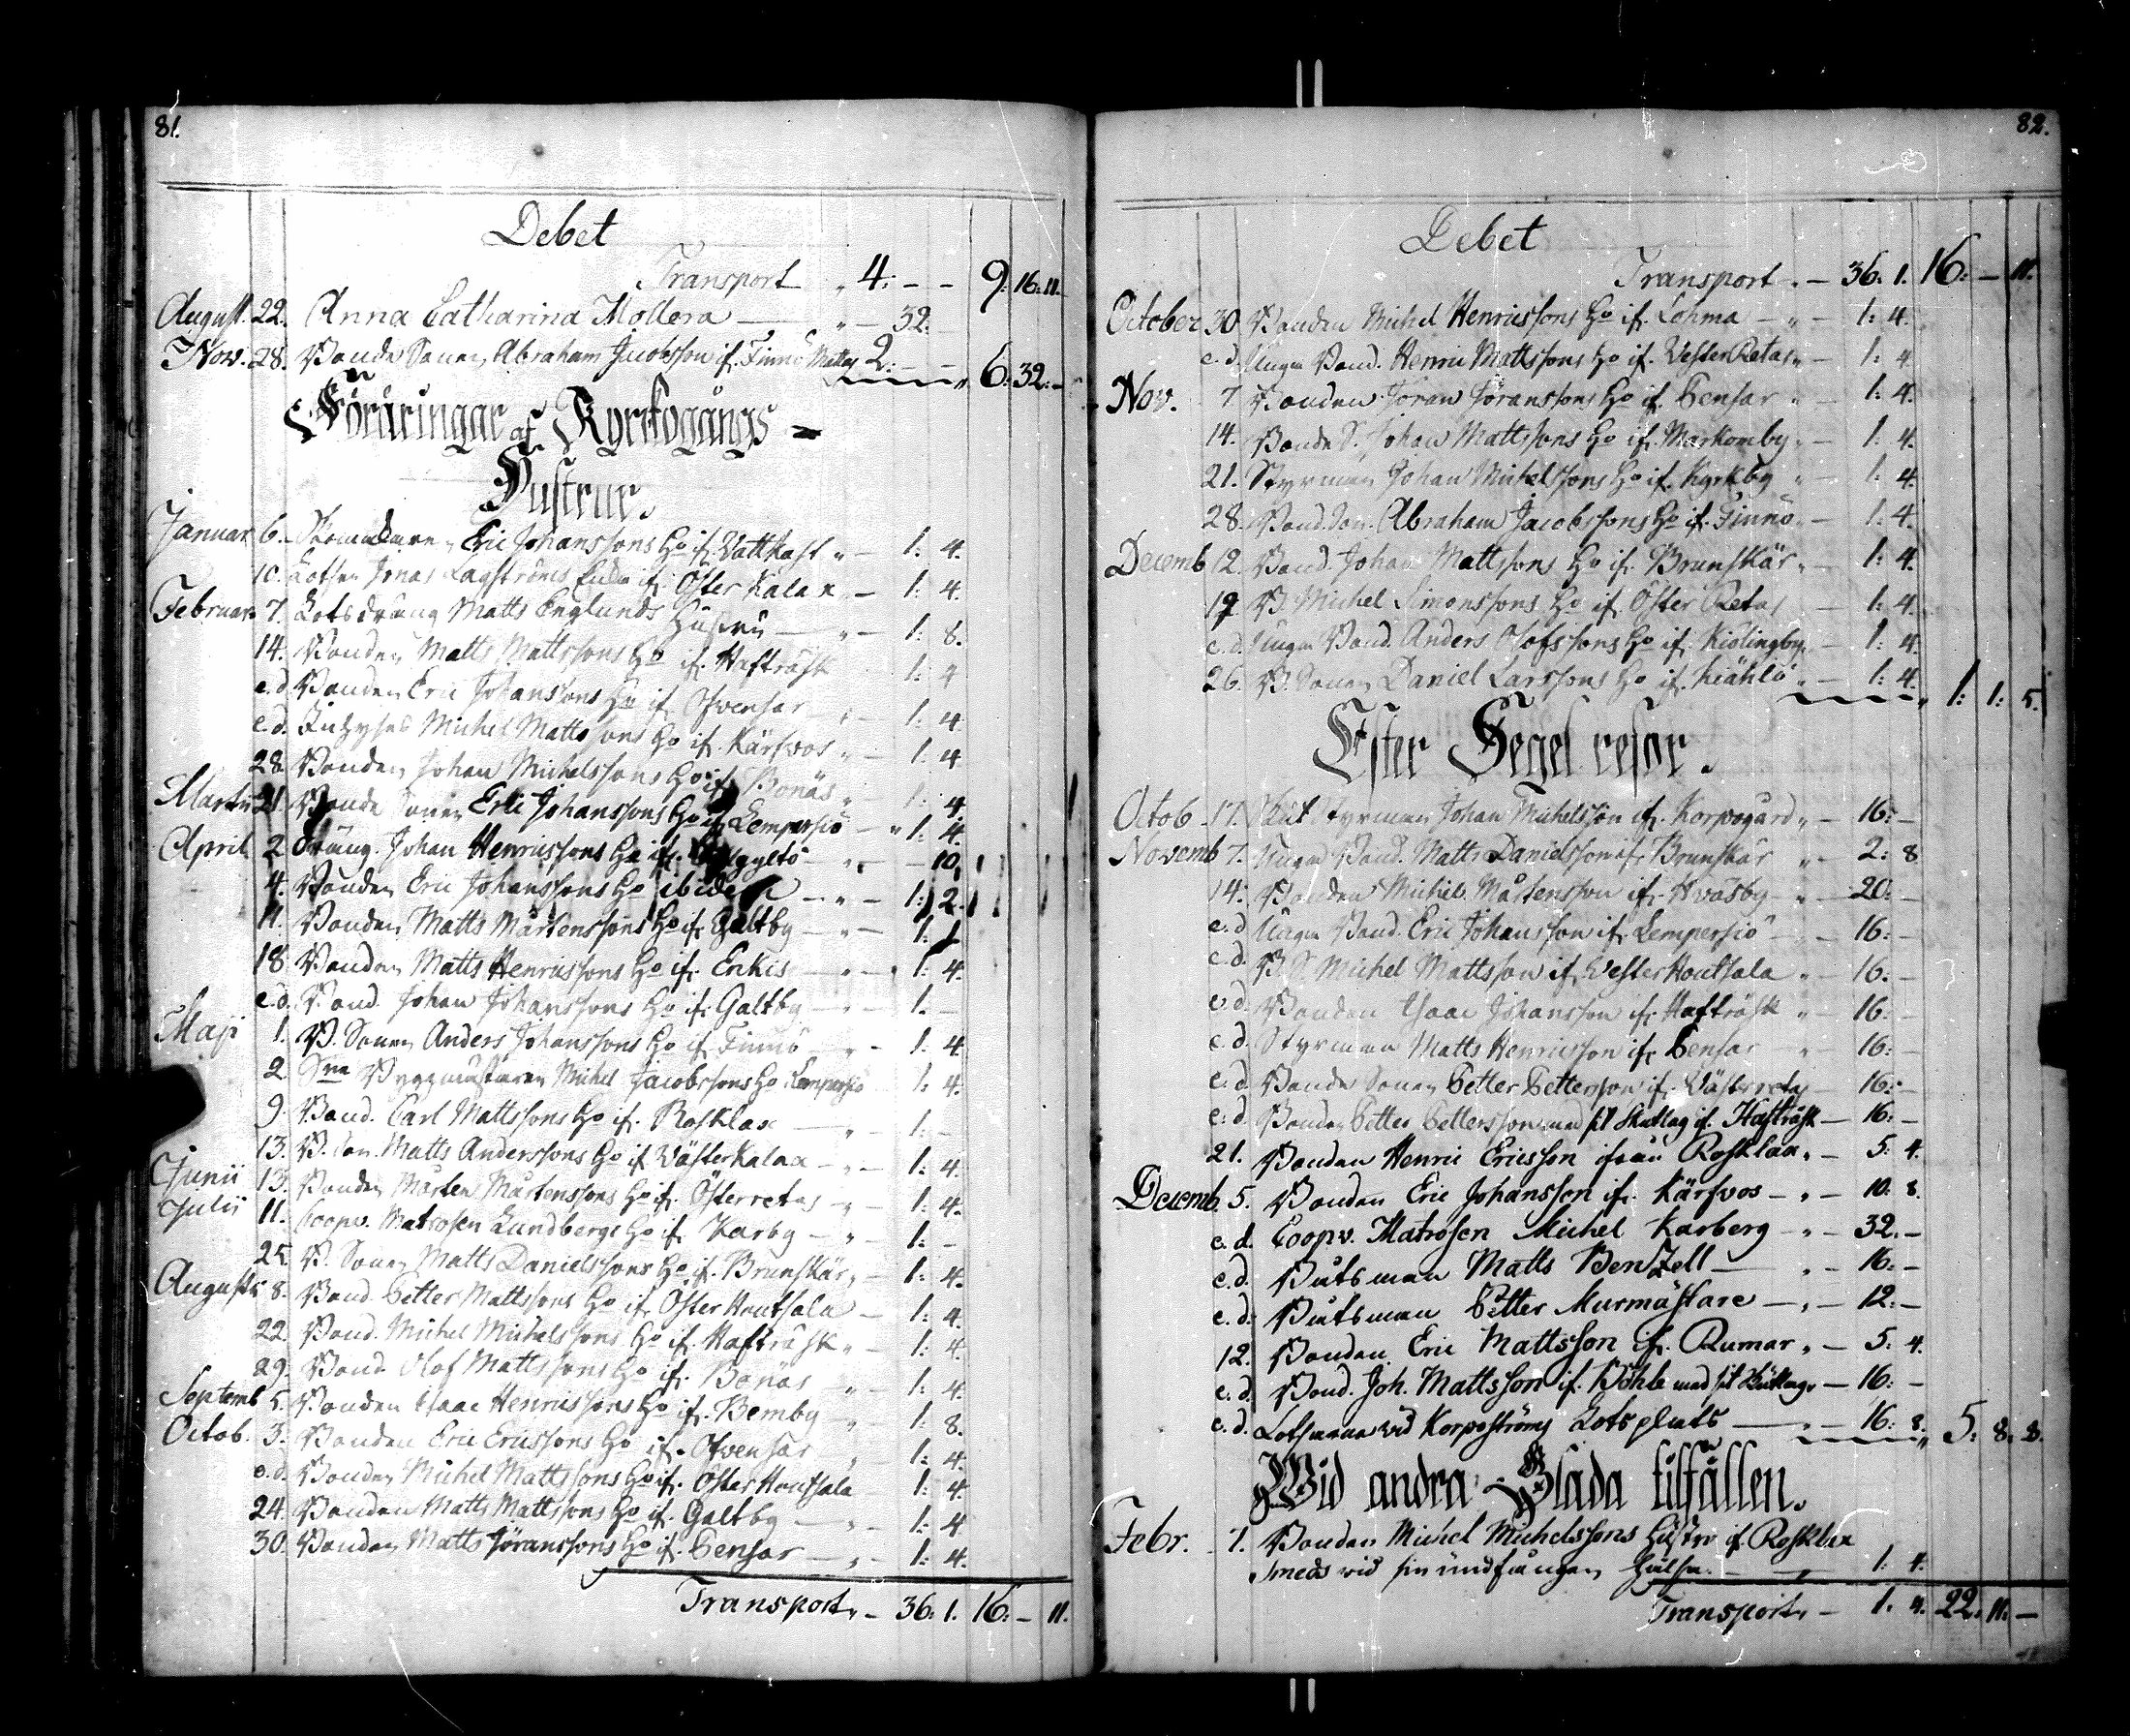 81.
Debet
Transport „ 4: — — 9: 16: 11.
August. 22. Anna Catharina Mollera — „ — 32. —
Nov. 28. Bonde Sonen Abraham Jacobsson if. Finnö Mattas 2: — — „ 6: 32: —
Föräringar af Kyrkogångs =
Hustrur.
Januar. 6. Eric Johanssons Ho if. Wattkast „ — 1: 4.
10. Lotsen Jonas Lagströms Enka if. Öster Kalax „ — 1: 4.
Februar. 7. Lotsdräng Matts Englunds Hustru — „ — 1: 8.
14. Bonden Matts Mattssons Ho if. Hafträsk 1: 4
e.d. Bonden Eric Johanssons Ho if. Ofvensor „ — 1: 4.
e.d. Inhyses Michel Mattssons Ho if. Kärfvos „ — 1: 4
28. Bonden Johan Michelssons Ho if. Bonäs „ 1: 4.
Martii 21. Bonde Sonen Eric Johanssons Ho if. Lempersiö — „ 1: 4.
April 2 Dräng. Johan Henricssons Ho if. — „ — 10.
4. Bonden Eric Johanssons Ho ibidem — „ — 1: 2.
11. Bonden Matts Mårtenssons Ho if. Galtby — „ — 1: 1
18 Bonden Matts Henricssons Ho if. Enkis — „ — 1: 4.
e.d. Bond. Johan Johanssons Ho if. Galtby — „ — 1: —
Maji 1. B. Sonen Anders Johanssons Ho if. Finnö — „ — 1: 4
2. Byggmästaren Michel Jacobssons Ho Lempersiö 1: 4.
9. Bond. Carl Mattssons Ho if. Rosklax — „ — 1: —
13. B. Son. Matts Anderssons Ho if. WästerKalax — „ — 1: 4.
Junii 13. Bonden Mårten Mårtenssons Ho if. Österretas „ — 1: 4.
Julii 11. Coopv. Matrosen Lundbergs Ho if. Karby — „ — 1: —
25. B. Sonen Matts Danielssons Ho if. Brunskär „ — 1: 4.
Augusti 8. Bond. Petter Mattssons Ho if. Öster Houtsala — 1: 4.
22. Bond. Michel Michelssons Ho if. Hafträsk „ — 1: 4.
29. Bond. Olof Mattssons Ho if. Bonäs — „ — 1: 4.
Septemb 5. Bonden Isaac Henricssons Ho if. Bemby — „ — 1: 8.
Octob. 3. Bonden Eric Ericssons Ho if. Ofvensor „ — 1: 4.
e.d. Bonden Michel Mattssons Ho if. Öster Houtsala 1: 4.
24. Bonden Matts Mattssons Ho if. Galtby — „ — 1: 4
30. Bonden Matts Jöranssons Ho if. Pensar — „ — 1: 4.
Transport „ — 36: 1. 16: — 11.
82.
Debet
Transport „ — 36: 1. 16: — 11.
October 30. Bonden Michel Henricssons Ho if. Lohma — „ — 1: 4.
e.d. Unga Bond. Henric Mattssons Ho if. Vester Retas „ — 1: 4
Nov. 7 Bonden Jöran Jöranssons Ho if. Pensar „ — 1: 4.
14. Bonde S. Johan Mattssons Ho if. Markomby „ — 1: 4.
21. Styrman Johan Michelssons Ho if. Kyrkby „ — 1: 4.
28. Bond. Son. Abraham Jacobssons Ho if. Finnö „ — 1: 4.
Decemb 12. Bond. Johan Mattssons Ho if. Brunskär „ — 1: 4.
19. B. Michel Simonssons Ho if. Öster Retas — 1: 4.
e.d. Unga Bond. Anders Olofssons Ho if. Kiölingby „ — 1: 4.
26. B. Sonen Daniel Larssons Ho if. Kiählö „ — 1: 4. „ 1: 1: 5.
Efter Segel resor.
Octob. 17. Skut Styrman Johan Michelsson if. Korpogård „ — 16: —
Novemb 7. Unga Bond. Matts Danielsson if. Brunskär „ — 2: 8
14. Bonden Michel Mårtensson if. Hväsby — „ — 20: —
e.d. Unga Bond. Eric Johansson if. Lempersiö — „ — 16: —
e.d. B. S. Michel Mattsson if. Wester Houtsala „ — 16: —
e.d. Bonden Isaac Johansson if. Hafträsk „ — 16: —
e.d. Styrman Matts Henricsson if. Pensar — „ — 16: —
e.d. Bonde Sonen Petter Pettersson if. Wästerretas — 16: —
e.d. Bonden Petter Pettersson med sit Skutlag if. Hafträsk — 16: —
21. Bonden Henric Ericsson ifrån Rosklax „ — 5: 4.
Decemb. 5. Bonden Eric Johansson if. Kärfvos — „ — 10: 8.
e.d. Coopv. Matrosen Michel Karberg — „ — 32. —
e.d. Båtsman Matts BenZell — „ — 16: —
e.d. Båtsman Petter Murmästare — „ — 12: —
12. Bonden Eric Mattsson if. Rumar „ — 5: 4.
e.d. Bond. Joh. Mattsson if. med sit — 16: —
e.d. Lotsarna vid Korpoströms Lotsplats — „ — 16: 8. „ 5: 8. 8.
Wid andra Glada tilfällen.
Febr. 7. Bonden Michel Michelssons Hustru if. Rosklax
Smeds vid sin undfångna hälsa. — „ 1: 4.
Transport „ — 1: 4. 22. 11. —